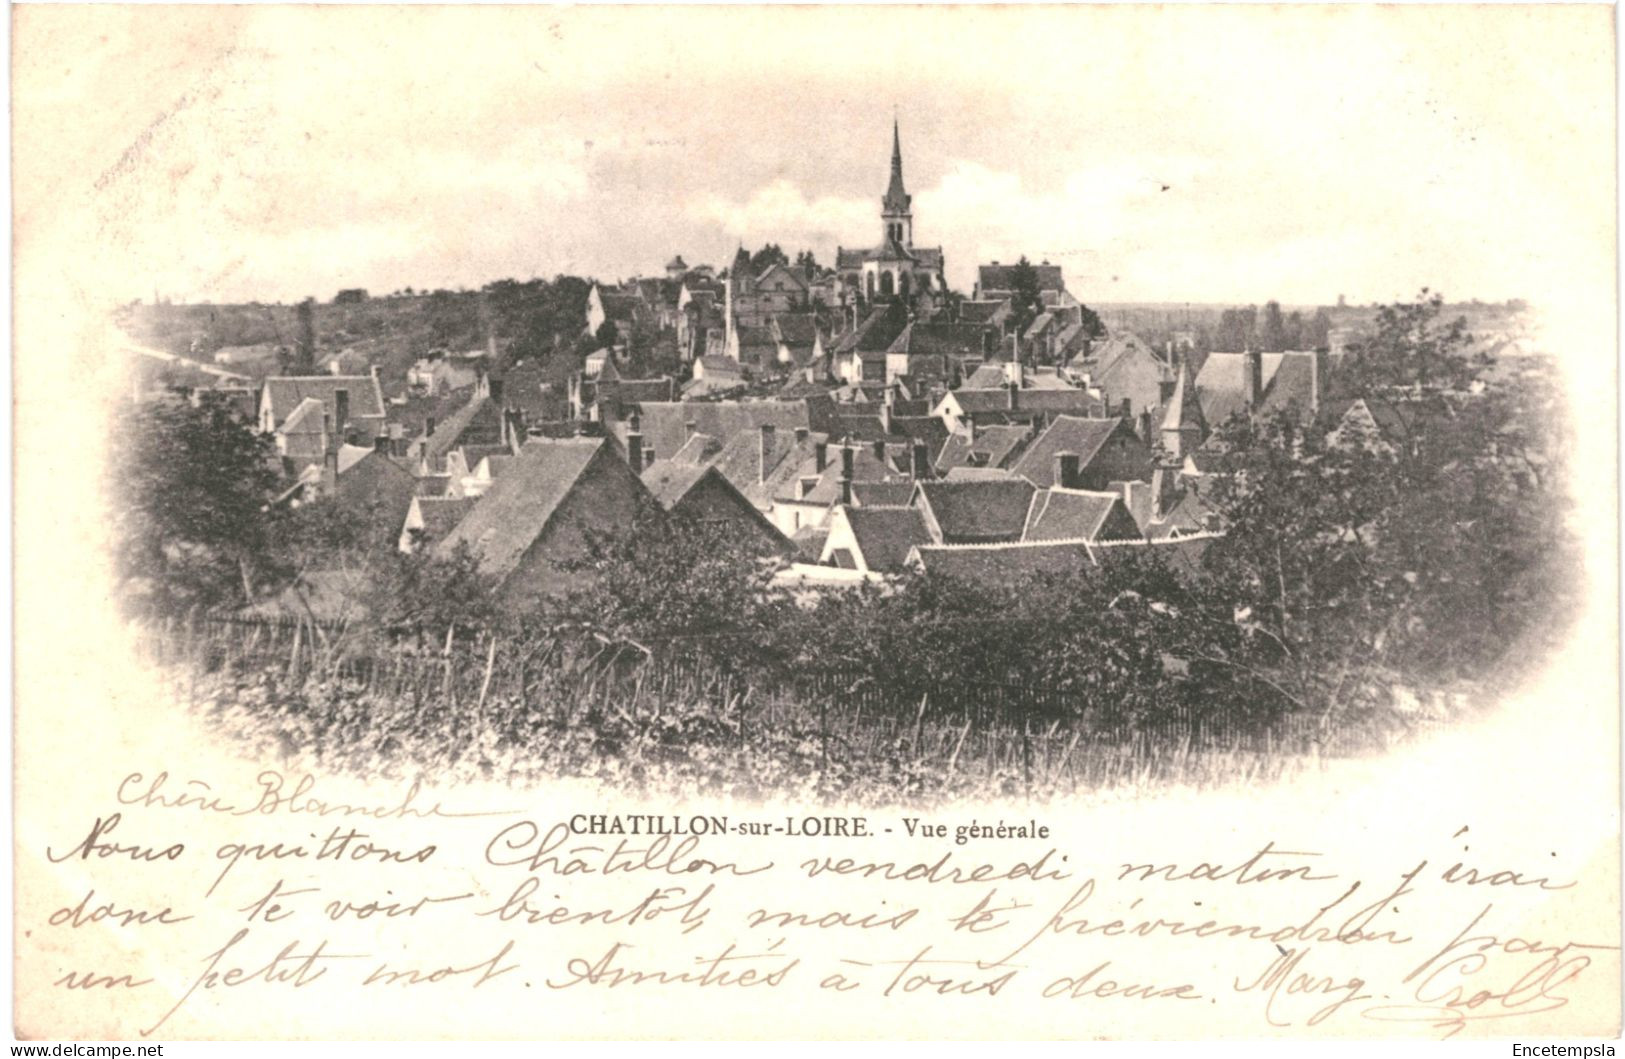 CHATILLON-sur-LOIRE. - Vue générale
Chère Blanche
Nous quittons Châtillon vendredi matin, j'irai
donc te voir bientôt, mais te préviendrai par
un petit mot. Amitiés à tous deux. Marg.
www.delcampe.net
Encetempsla